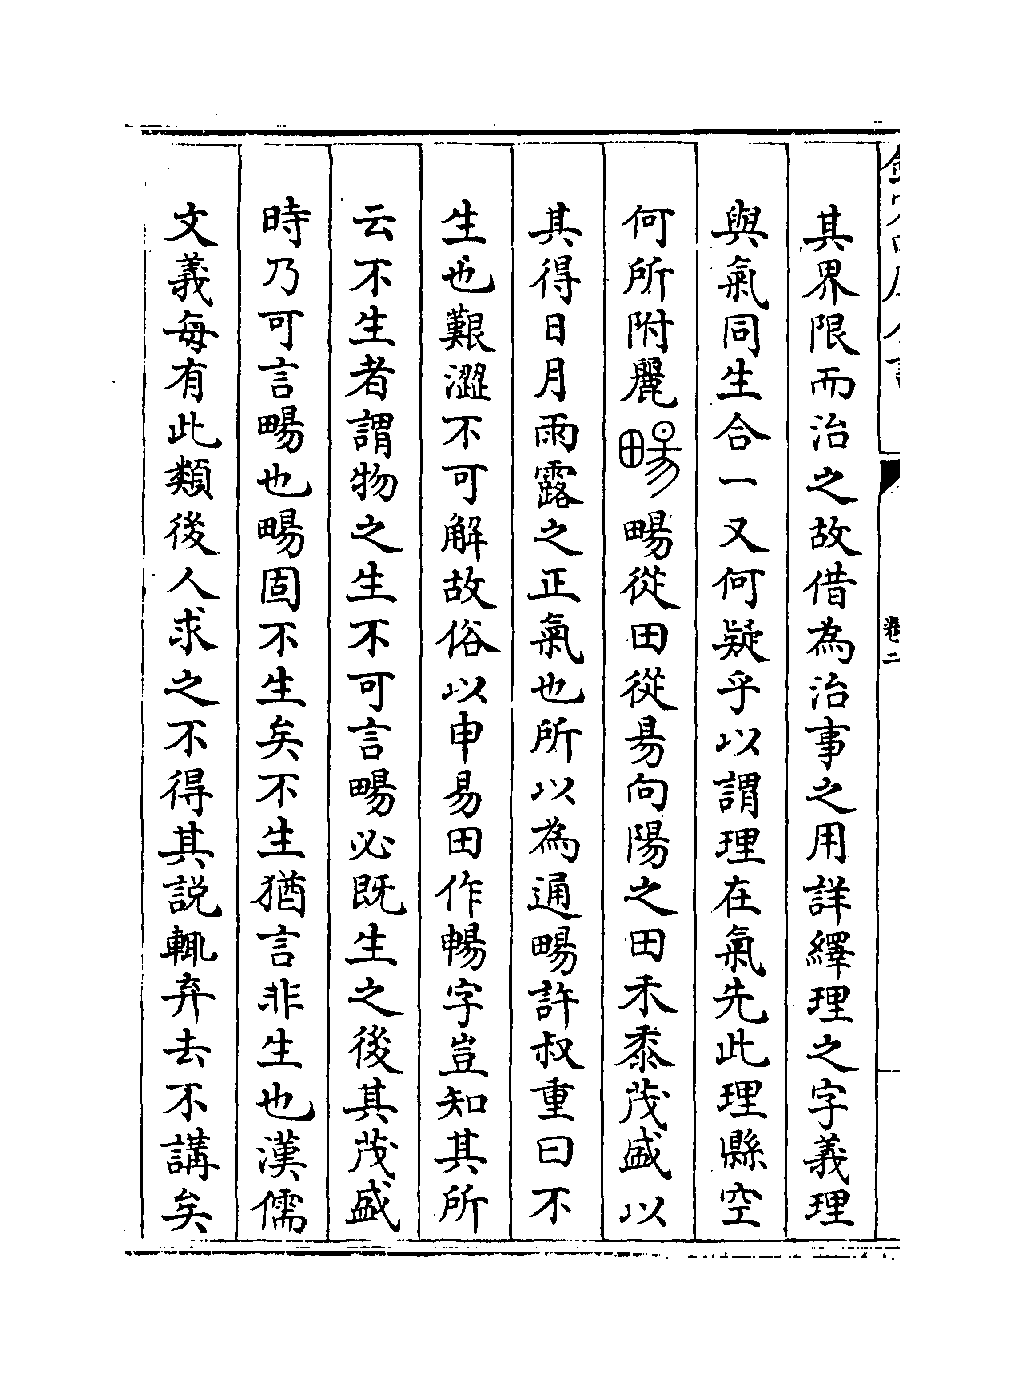 其界限而治之故借為治事之用詳繹理之字義理
與氣同生合一又何疑乎以謂理在氣先此理縣空
何所附麗畼畼從田從昜向陽之田禾黍茂盛以
其得日月雨露之正氣也所以為通畼許叔重曰不
生也艱澀不可解故俗以申易田作暢字豈知其所
云不生者謂物之生不可言畼必既生之後其茂盛
時乃可言畼也畼固不生矣不生猶言非生也漢儒
文義每有此類後人求之不得其説輒弃去不講矣
卷二